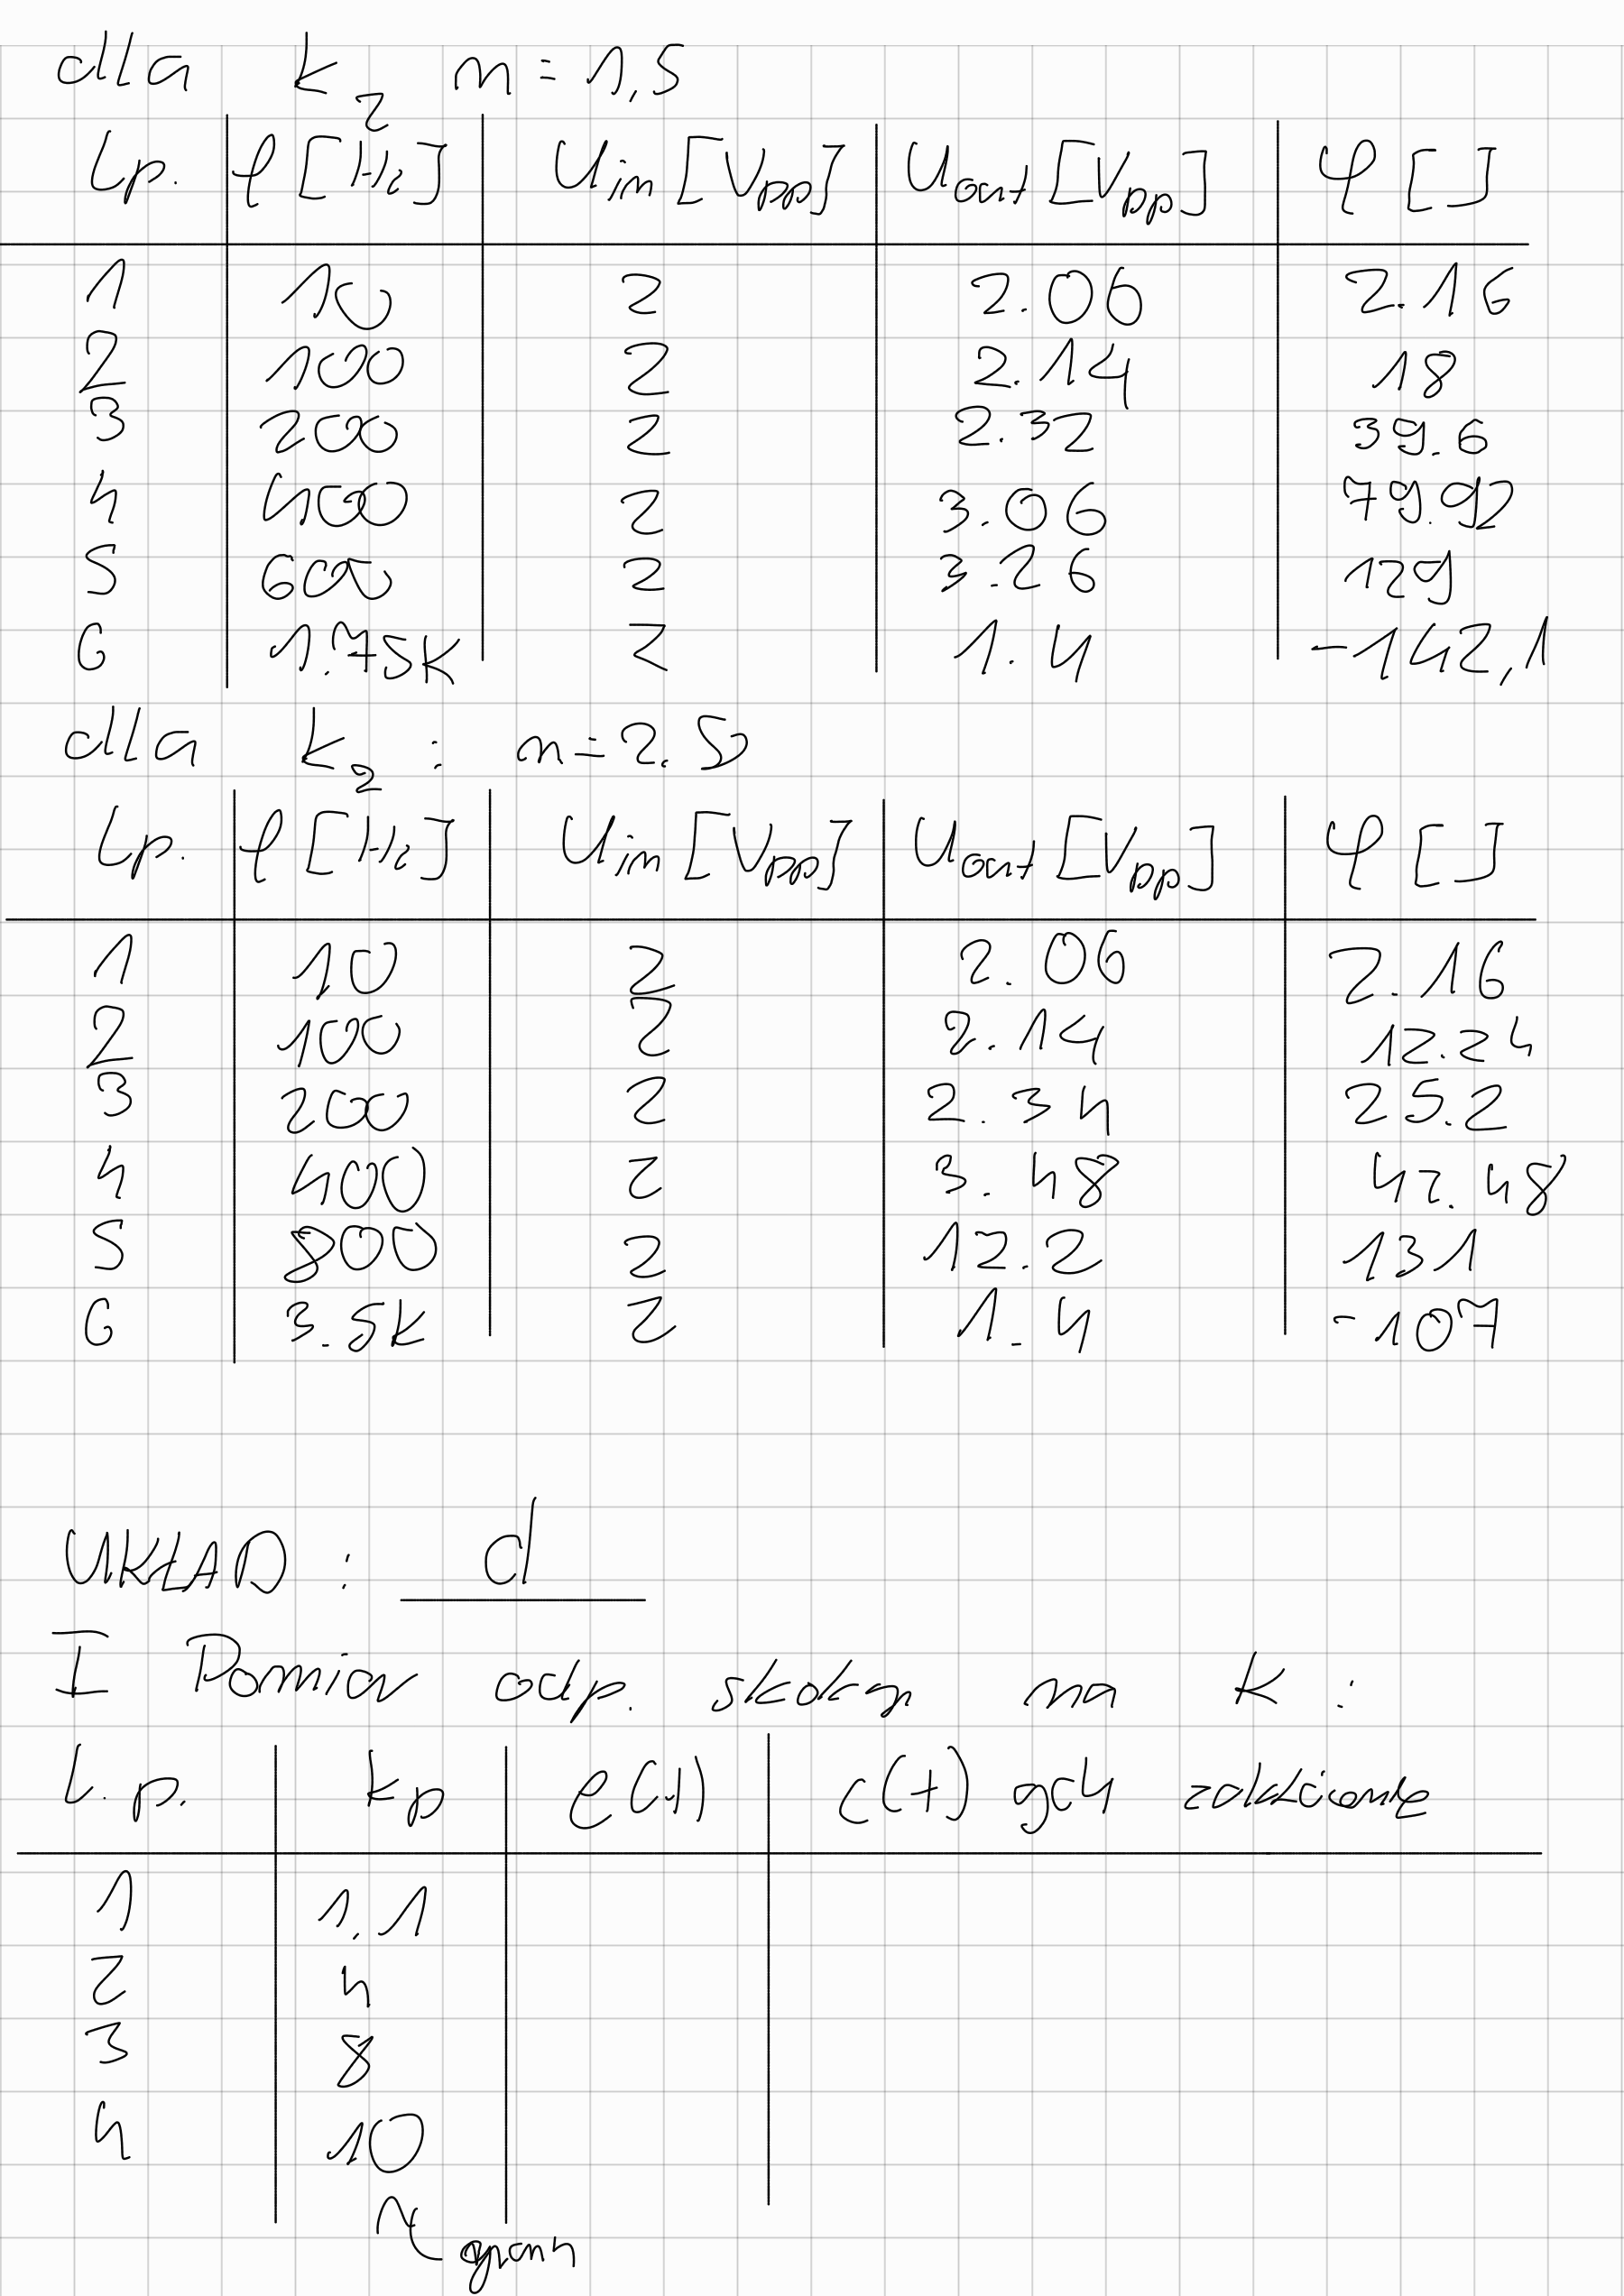 dla k2 n=1,5
Lp. f [Hz] Uin [Vpp] Uout [Vpp] φ [ ]
1 10 2 2.06 2.16
2 100 2 2.14 18
3 200 2 2.32 39.6
4 400 2 3.06 79.92
5 600 2 3.26 129
6 1.75k 2 1.4 -142,1
dla k2 : n=2.5
Lp. f [Hz] Uin [Vpp] Uout [Vpp] φ [ ]
1 10 2 2.06 2.16
2 100 2 2.14 12.24
3 200 2 2.34 25.2
4 400 2 3.48 47.48
5 800 2 12.2 131
6 3.5k 2 1.4 -107
UKŁAD : d
I Pomiar odp. skokow na K :
L.p. kp e(t) c(t) gdy zakłócenie
1 1.1
2 4
3 8
4 10